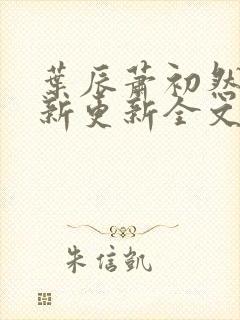 葉辰蕭初然
新更新全文
朱信凱